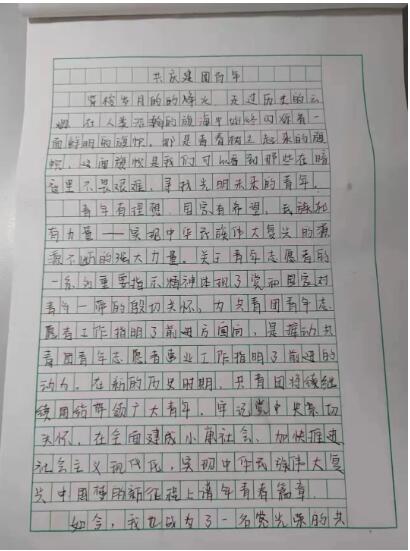 共庆建团百年
穿梭岁月的的烽火，走过历史的云
烟，在人类浩瀚的旗海里始终闪烁着一
面鲜明的旗帜，那是青春树立起来的旗
帜，这面旗帜是我们可以看到那些在暗
夜里不畏艰难，寻找光明未来的青年。
青年有理想，国家有希望，民族就
有力量——实现中华民族伟大复兴的源
源不断的强大力量。关于青年志愿者的
一系列重要指示精神体现了党和国家对
青年一群的殷切关怀，为共青团青年志
愿者工作指明了前进方向，是推动共
青团青年志愿者事业工作指明了前进的
动力。在新的历史时期，共青团将继续
续团结带领广大青年，牢记党中央亲切
关怀，在全面建成小康社会、加快推进
社会主义现代化，实现中华民族伟大复
兴中国梦的新征程上谱写青春篇章。
如今，我也成为了一名光荣的共